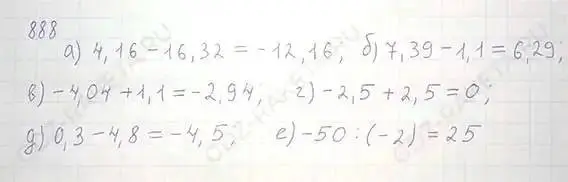 888
а) 4,16 - 16,32 = -12,16; б) 7,39 - 1,1 = 6,29;
в) -4,04 + 1,1 = -2,94, г) -2,5 + 2,5 = 0;
д) 0,3 - 4,8 = -4,5, е) -50 : (-2) = 25